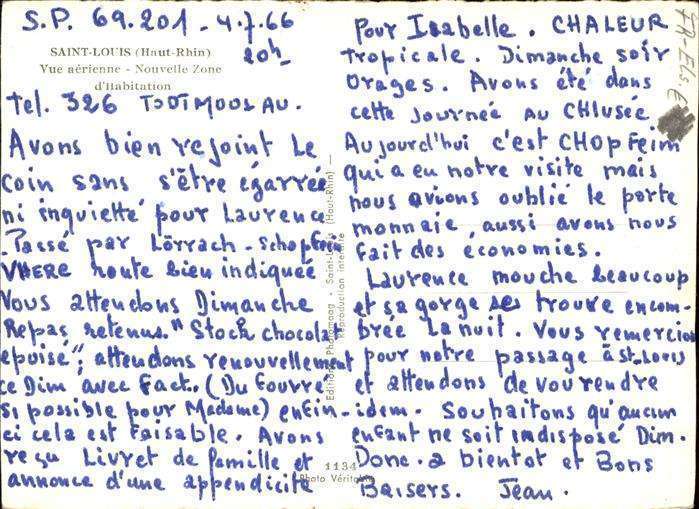 S.P. 69.201 - 4.7.66
20h
SAINT-LOUIS (Haut-Rhin)
Vue aérienne - Nouvelle Zone
d'Habitation
Tel. 326 TODTMOOS AU.
Avons bien rejoint le
coin sans s'être égarrée
ni inquietté pour Laurence
Passé par Lörrach - Schopfein
VHERE route bien indiquée
Vous attendons Dimanche
Repas retenus "Stock chocolat
épuisé"; attendons renouvellement
ce Dim avec Fact. (Du Fouvré
si possible pour Madame) enfin
ci cela est faisable. Avons
reçu Livret de famille et
annonce d'une appendicite
Editions Photomaag - Saint-Louis (Haut-Rhin) -
Reproduction interdite
1134
Photo Véritable
Pour Isabelle. CHALEUR
tropicale. Dimanche soir
Orages. Avons été dans
cette journée au CHlusée
Aujourd'hui c'est CHOPFeim
qui a eu notre visite mais
nous avions oublié le porte
monnaie aussi avons nous
fait des économies.
Laurence mouche beaucoup
et sa gorge se trouve encom-
brée la nuit. Vous remercion
pour notre passage à St. Louis
et attendons de vou rendre
-idem. Souhaitons qu'aucun
enfant ne soit indisposé Dim.
Donc. a bientot et Bons
Baisers. Jean.
FR-ELS-E